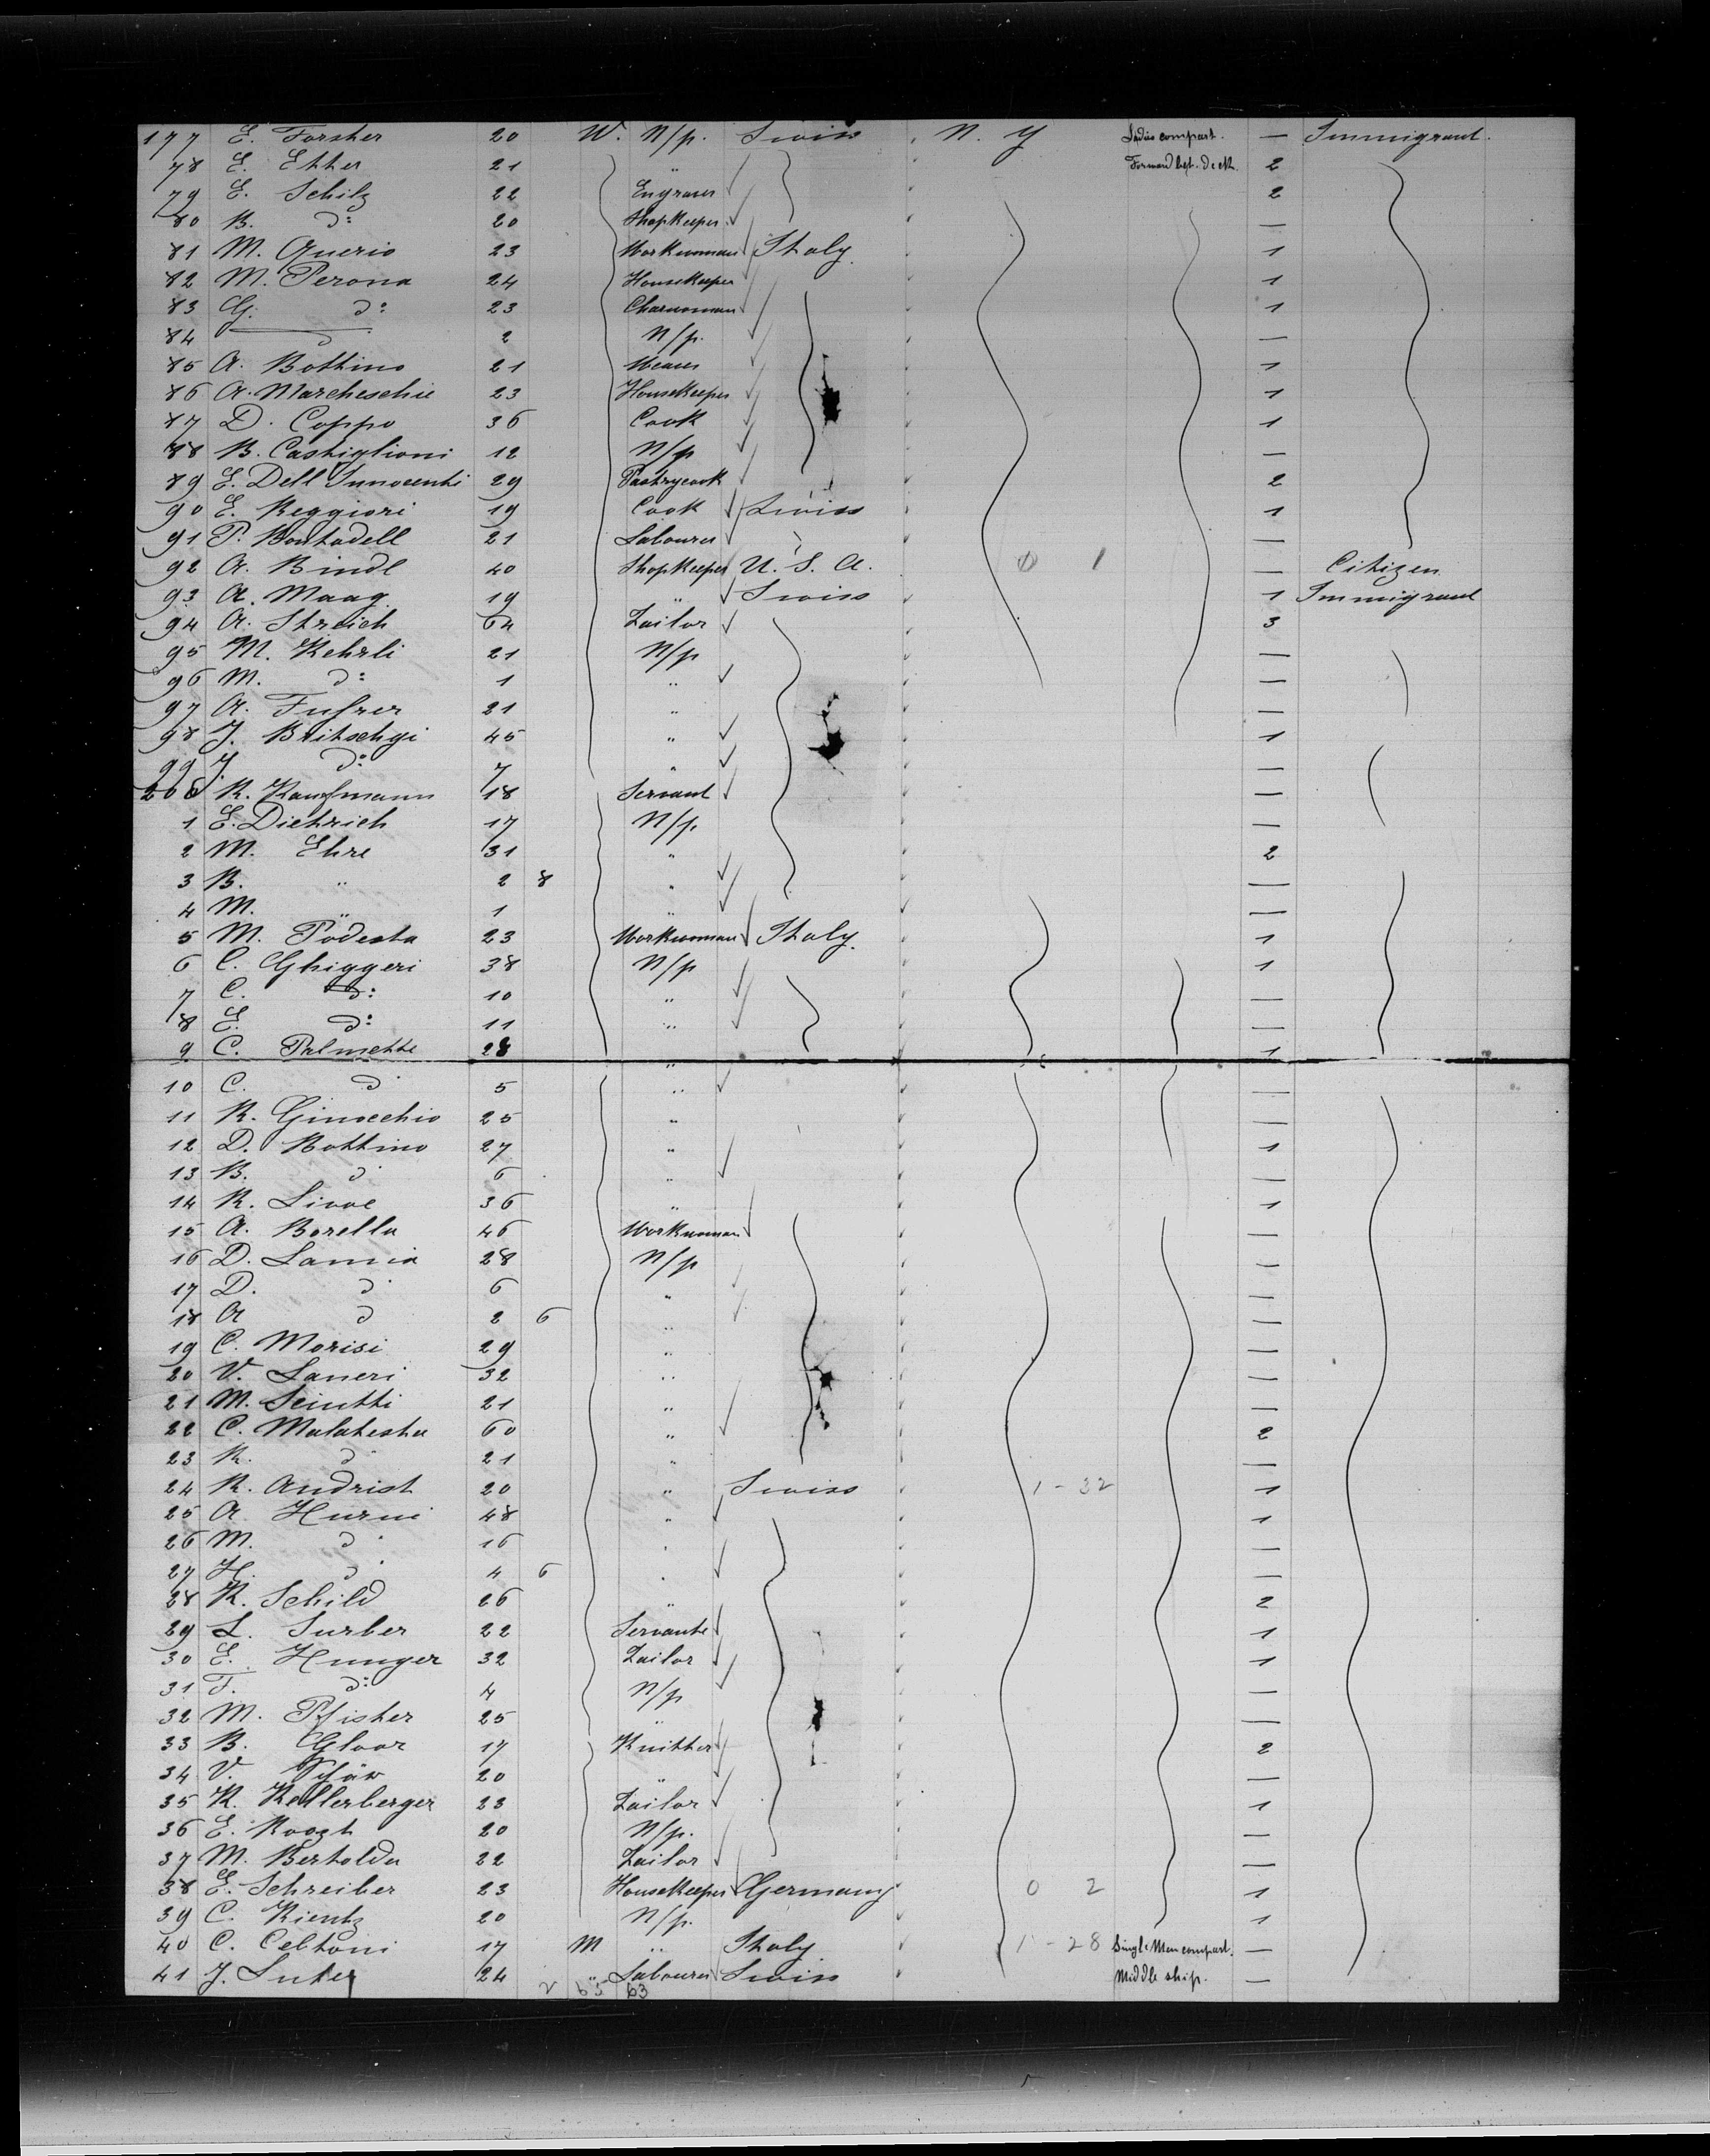 177 E. Forster 20 W. N/p. Swiss N. Y Ladies compart. — Immigrant.
78 E. Etter 21 " Forward bet. deck. 2
79 E. Schilz 22 Engraver 2
80 B. do: 20 Shopkeeper —
81 M. Querio 23 Workwoman Italy 1
82 M. Perona 24 Housekeeper 1
83 G. do: 23 Charwoman 1
84 2 N/p. —
85 A. Bottino 21 Weaver 1
86 A. Marcheschie 23 Housekeeper 1
87 D. Coppo 36 Cook 1
88 B. Castiglioni 12 N/p —
89 E. Dell Innocenti 29 Pastrycook 2
90 E. Reggiori 19 Cook Swiss 1
91 P. Bontadell 21 Labourer —
92 A. Bindl 40 Shopkeeper U. S. A. 0 1 — Citizen
93 A. Maag 19 " Swiss 1 Immigrant
94 A. Streich 64 Tailor 3
95 M. Kehrli 21 N/p —
96 M. do: 1 " —
97 A. Fuhrer 21 " —
98 J. Britschgi 45 " 1
99 J. do: 7 " —
200 R. Kaufmann 18 Servant —
1 E. Diethrich 17 N/p. —
2 M. Ehre 31 " 2
3 B. " 2 8 " —
4 M. " 1 " —
5 M. Podesta 23 Workwoman Italy 1
6 C. Ghiggeri 38 N/p 1
7 C. do: 10 " —
8 E. do: 11 " —
9 C. Palmette 28 " 1
10 C. do 5 " —
11 R. Ginocchio 25 " —
12 D. Bottino 27 " 1
13 B. do 6 " —
14 R. 36 " 1
15 A. Borella 46 Workwoman —
16 D. Lamia 28 N/p —
17 D. do 6 " —
18 A do 2 6 " —
19 C. Morisi 29 " —
20 V. Laneri 32 " —
21 M. Sciutti 21 " —
22 C. Malatesta 60 " 2
23 R. do 21 " —
24 R. Andrist 20 " Swiss 1 - 32 1
25 A. Hurni 48 " 1
26 M. do 16 " —
27 H. do 4 6 " —
28 R. Schild 26 " 2
29 L. Surber 22 Servante 1
30 E. Hunger 32 Tailor 1
31 F. do: 4 N/p —
32 M. Pfister 25 " —
33 B. Gloor 17 Knitter 2
34 V. 20 " —
35 K. Kellerberger 23 Tailor 1
36 E. Koozt 20 N/p. —
37 M. Bertolda 22 Tailor —
38 E. Schreiber 23 Housekeeper Germany 0 2 1
39 C. Kientz 20 N/p. 1
40 C. Celtoni 17 M " Italy 1 - 28 Single Men compart. —
41 J. Suter 24 " Labourer Swiss Middle ship. —
2 65 63